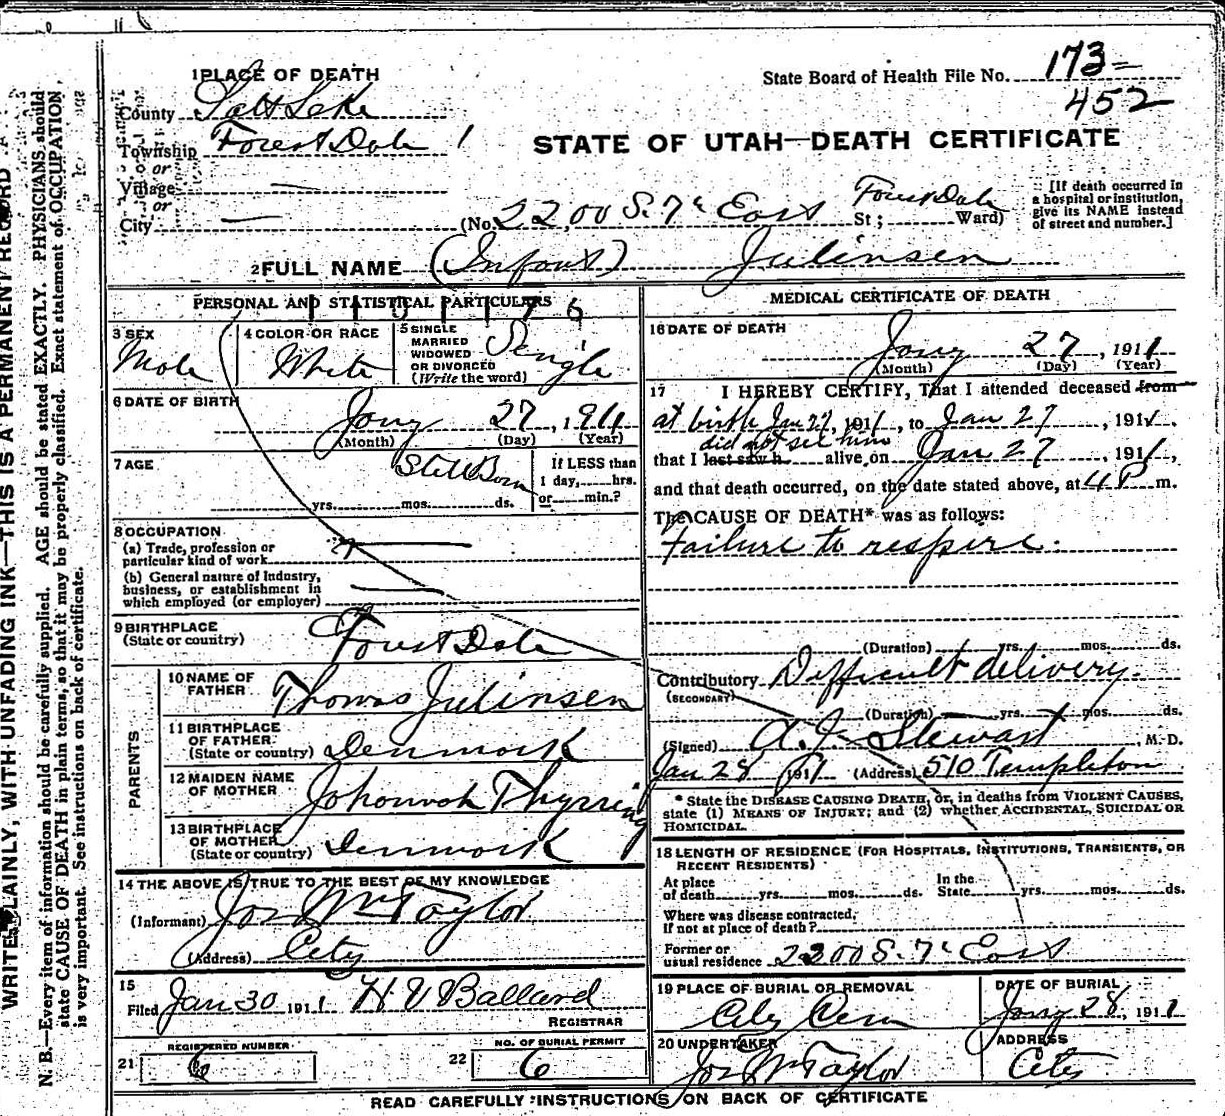 1 PLACE OF DEATH
State Board of Health File No. 173=
452
County Salt Lake
Township Forest Dale 1
or
Village —
or
City —
STATE OF UTAH—DEATH CERTIFICATE
(No. 2200 S. 7th East St; Forest Dale Ward)
[If death occurred in
a hospital or institution,
give its NAME instead
of street and number.]
2 FULL NAME (Infant) Julinsen
PERSONAL AND STATISTICAL PARTICULARS
3 SEX
Male
4 COLOR OR RACE
White
5 SINGLE
MARRIED
WIDOWED
OR DIVORCED
(Write the word)
Single
6 DATE OF BIRTH
Jany 27, 1911
(Month) (Day) (Year)
7 AGE
Still Born
yrs. mos. ds.
If LESS than
1 day, hrs.
or min.?
8 OCCUPATION
(a) Trade, profession or
particular kind of work
(b) General nature of Industry,
business, or establishment in
which employed (or employer)
9 BIRTHPLACE
(State or country)
Forest Dale
PARENTS
10 NAME OF
FATHER
Thomas Julinsen
11 BIRTHPLACE
OF FATHER
(State or country)
Denmark
12 MAIDEN NAME
OF MOTHER
Johannah Thyrring
13 BIRTHPLACE
OF MOTHER
(State or country)
Denmark
14 THE ABOVE IS TRUE TO THE BEST OF MY KNOWLEDGE
(Informant) Jos Wm Taylor
(Address) City
15
Filed Jan 30 1911 H V Ballard
REGISTRAR
21 REGISTERED NUMBER
6
22 NO. OF BURIAL PERMIT
6
MEDICAL CERTIFICATE OF DEATH
16 DATE OF DEATH
Jany 27, 1911
(Month) (Day) (Year)
17 I HEREBY CERTIFY, That I attended deceased from
at birth Jan 27, 1911, to Jan 27, 1911,
did not see him
that I last saw h alive on Jan 27, 1911,
and that death occurred, on the date stated above, at 4 P m.
The CAUSE OF DEATH* was as follows:
Failure to respire.
(Duration) yrs. mos. ds.
Contributory Difficult delivery.
(SECONDARY)
(Duration) yrs. mos. ds.
(Signed) A. J. Stewart, M.D.
Jan 28 1911 (Address) 510 Templeton
* State the DISEASE CAUSING DEATH, or, in deaths from VIOLENT CAUSES,
state (1) MEANS OF INJURY; and (2) whether ACCIDENTAL, SUICIDAL OR
HOMICIDAL.
18 LENGTH OF RESIDENCE (FOR HOSPITALS, INSTITUTIONS, TRANSIENTS, OR
RECENT RESIDENTS)
At place
of death yrs. mos. ds.
In the
State yrs. mos. ds.
Where was disease contracted,
if not at place of death?
Former or
usual residence 2200 S. 7th East
19 PLACE OF BURIAL OR REMOVAL
City Cem
DATE OF BURIAL
Jany 28, 1911
20 UNDERTAKER
Jos Wm Taylor
ADDRESS
City
READ CAREFULLY INSTRUCTIONS ON BACK OF CERTIFICATE
WRITE PLAINLY, WITH UNFADING INK—THIS IS A PERMANENT RECORD
N. B.—Every item of information should be carefully supplied. AGE should be stated EXACTLY. PHYSICIANS should
state CAUSE OF DEATH in plain terms, so that it may be properly classified. Exact statement of OCCUPATION
is very important. See instructions on back of certificate.